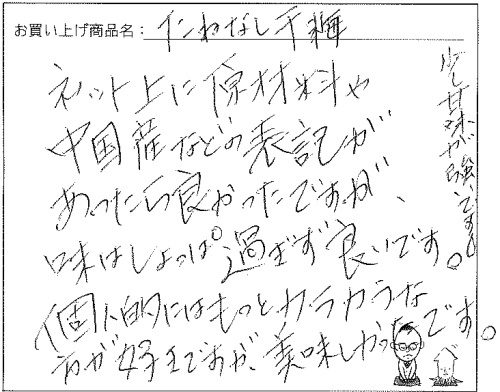 お買い上げ商品名:たねなし干梅
ネット上に原材料や
中国産などの表記が
あったら良かったですが、
味はしょっぱ過ぎず良いです。
個人的にはもっとカラカラな
方が好きですが、美味しかったです。
少し甘味が強いです。